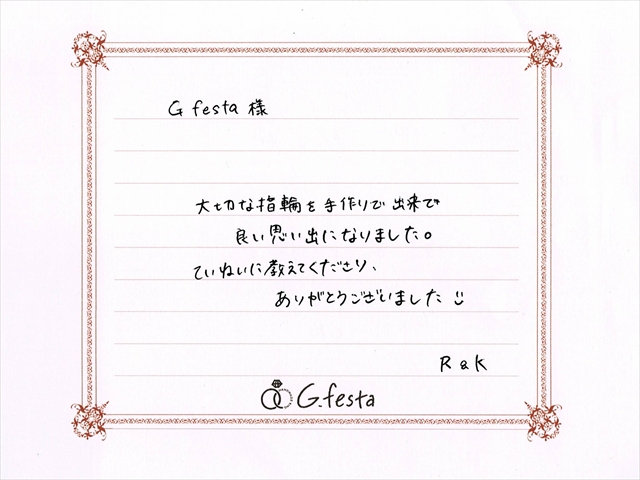 G festa 様
大切な指輪を手作りで出来て
良い思い出になりました。
ていねいに教えてくださり、
ありがとうございました
R & K
G.festa